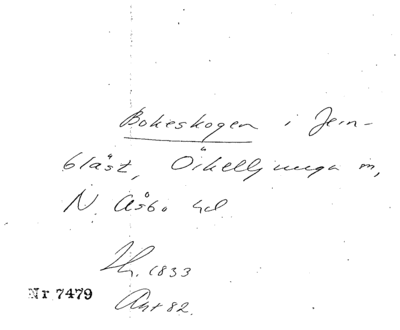 Bokeskogen i Jein-
bläst, Örkelljunga m,
N. Åsbo hd
Th. 1833
Nr 7479
Akt 82.